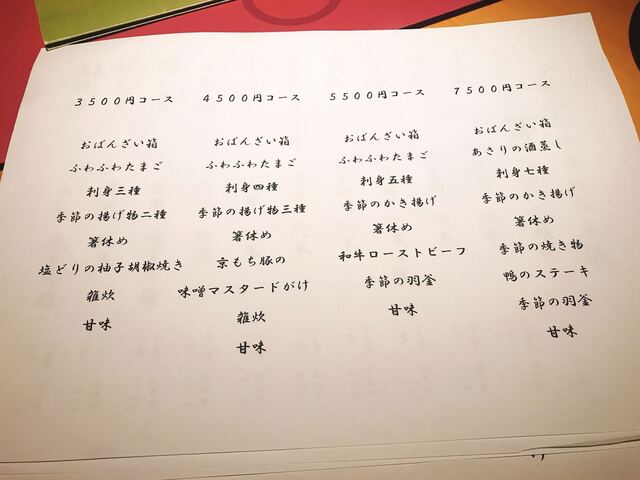 3500円コース
おばんざい箱
ふわふわたまご
刺身三種
季節の揚げ物二種
箸休め
塩どりの柚子胡椒焼き
雑炊
甘味
4500円コース
おばんざい箱
ふわふわたまご
刺身四種
季節の揚げ物三種
箸休め
京もち豚の
味噌マスタードがけ
雑炊
甘味
5500円コース
おばんざい箱
ふわふわたまご
刺身五種
季節のかき揚げ
箸休め
和牛ローストビーフ
季節の羽釜
甘味
7500円コース
おばんざい箱
あさりの酒蒸し
刺身七種
季節のかき揚げ
箸休め
季節の焼き物
鴨のステーキ
季節の羽釜
甘味